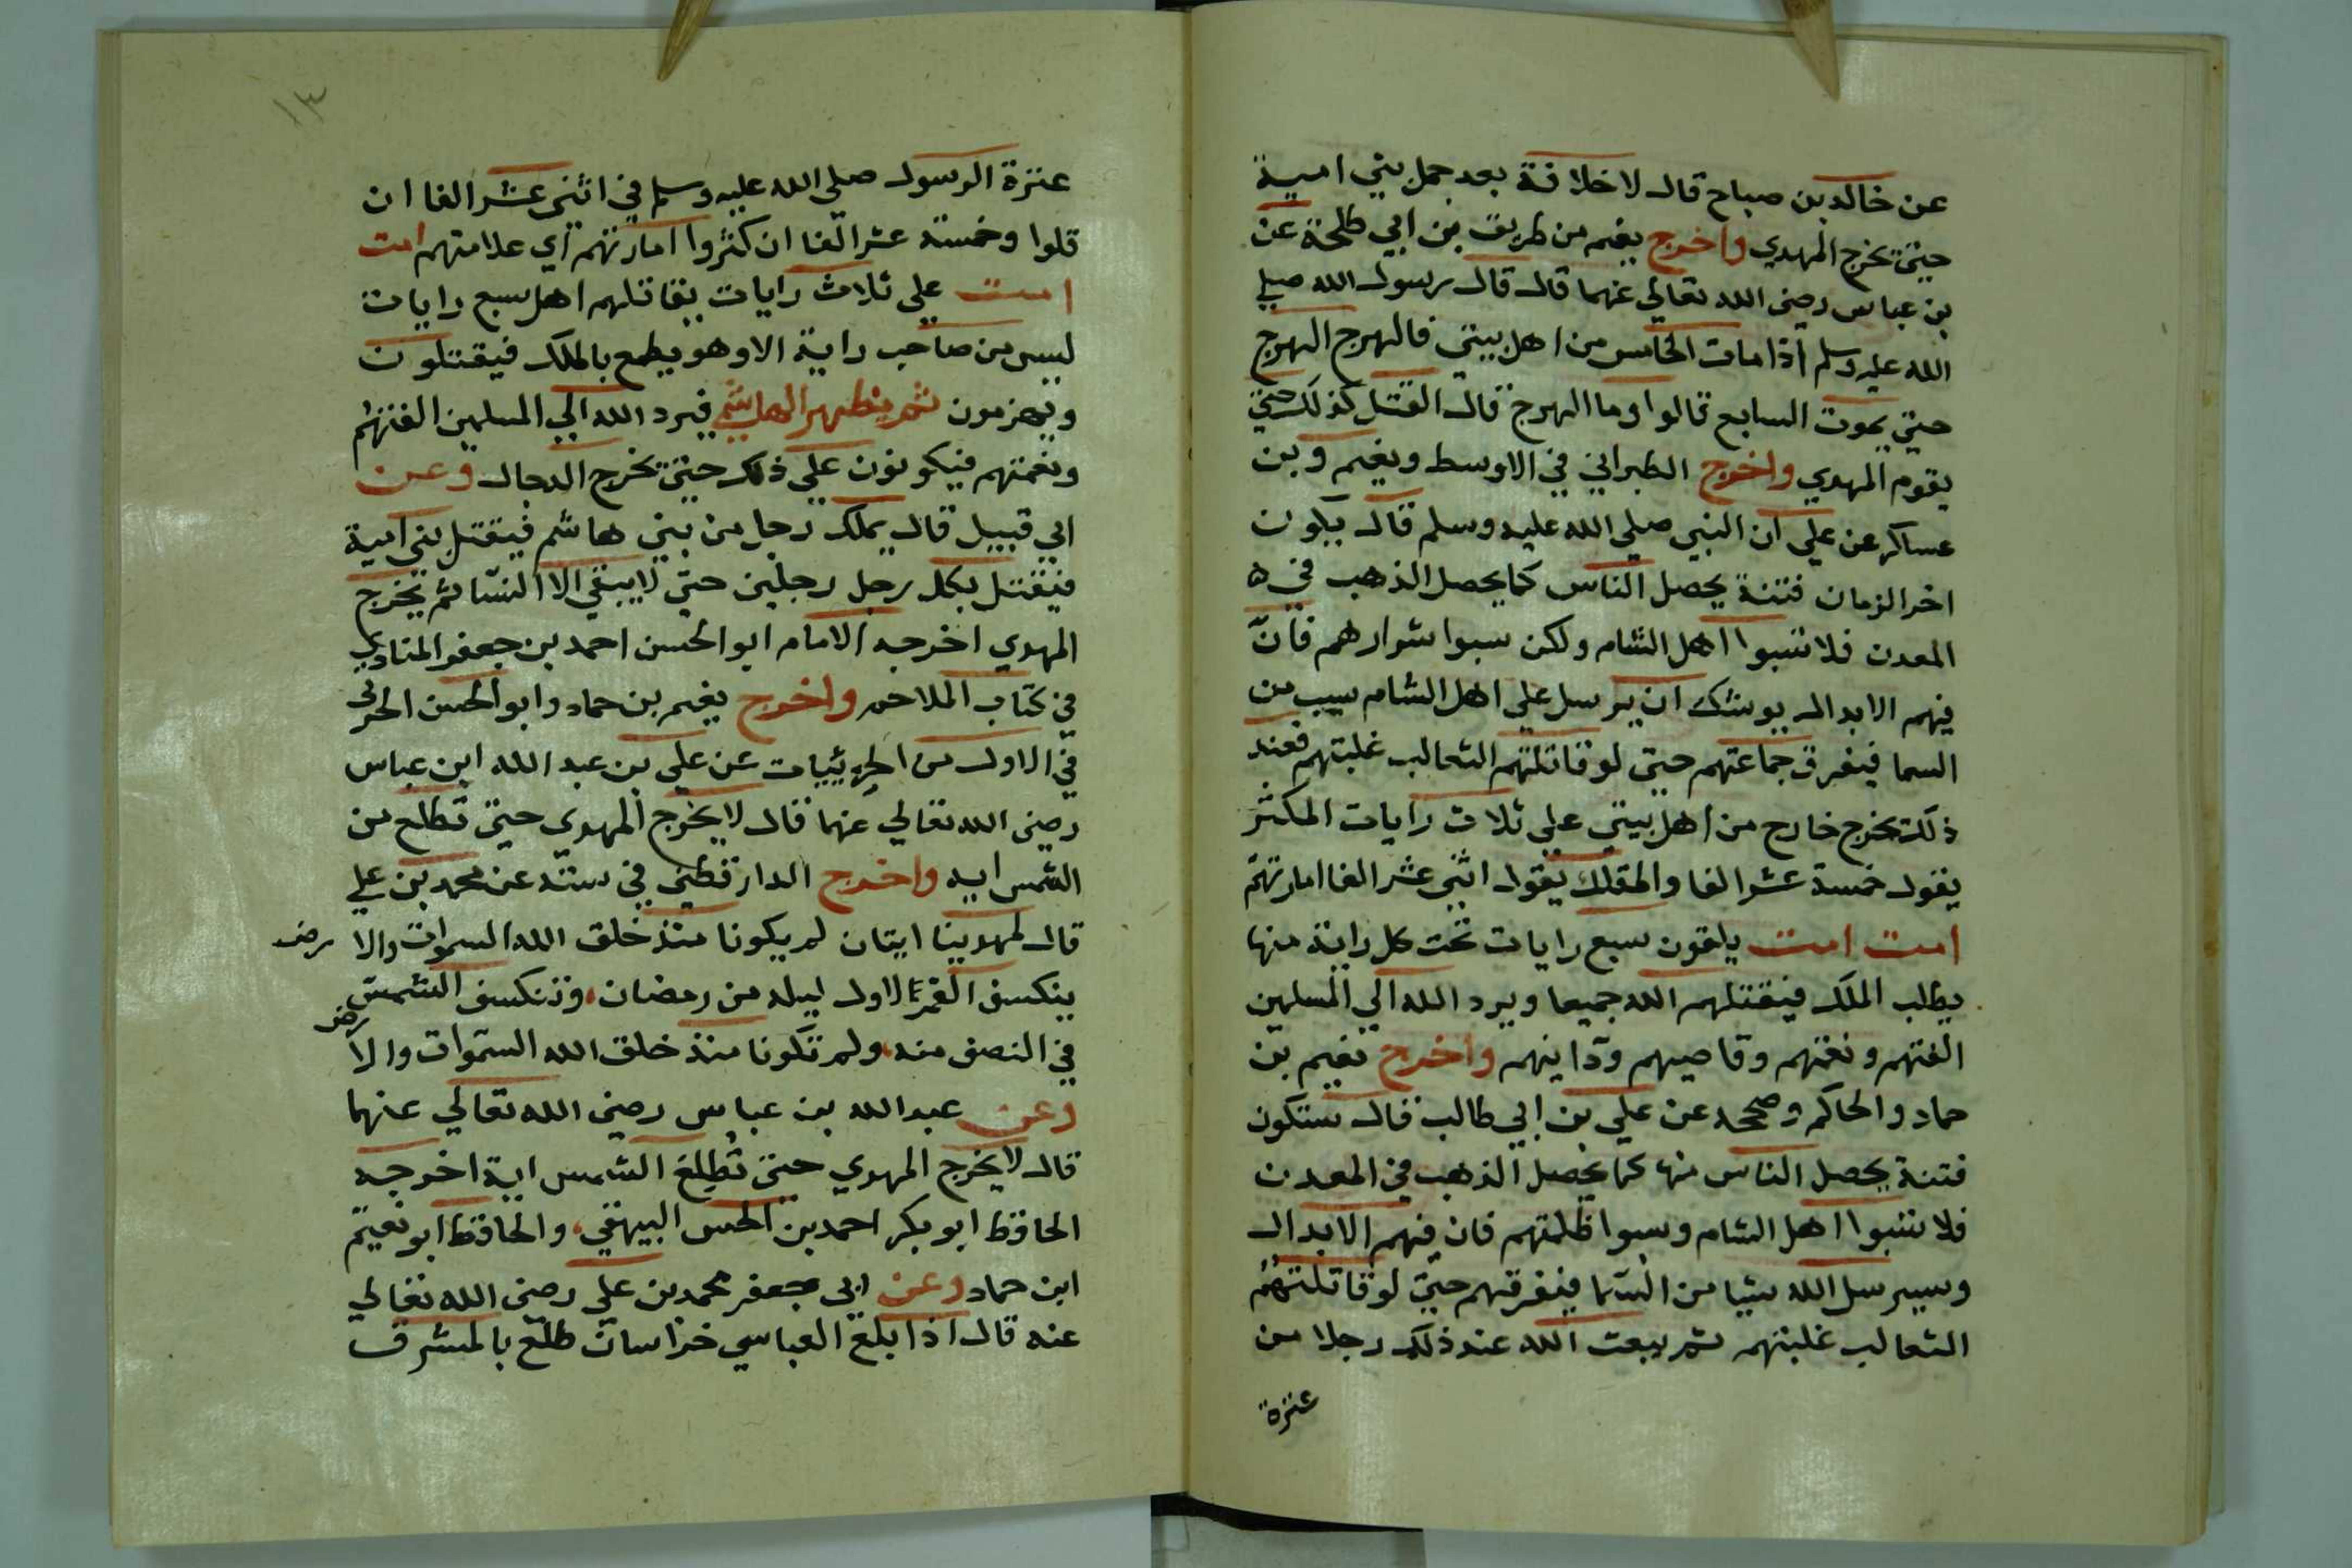 عن خالد بن صباح قال لا خلافة بعد حمل بني امية
حتى يخرج المهدي واخرج نعيم من طريق بن ابي طلحة عن
بن عباس رضى الله تعالي عنهما قال قال رسول الله صلي
الله عليه وسلم اذا مات الخامس من اهل بيتي فالهرج الهرج
حتي يموت السابع قالوا وما الهرج قال القتل كذلك حتي
يقوم المهدي واخرج الطبراني في الاوسط ونعيم وبن
عساكر عن علي ان النبي صلي الله عليه وسلم قال يكون
اخر الزمان فتنة يحصل الناس كما يحصل الذهب في
المعدن فلا تسبوا اهل الشام ولكن سبوا شرارهم فانّ
فيهم الابدال يوشك ان يرسل علي اهل الشام سيب من
السما فيفرق جماعتهم حتي لو قاتلتهم الثعالب غلبتهم فعند
ذلك يخرج خارج من اهل بيتي علي ثلاث رايات المكثر
يقول خمسة عشر الفا والمقلل يقول اثني عشر الفا امارتهم
امت امت يلقون سبع رايات تحت كل راية منها
يطلب الملك فيقتلهم الله جميعا ويرد الله الي المسلمين
الفتهم ونغمتهم وقاصيهم ودانيهم واخرج نعيم بن
حماد والحاكم وصححه عن علي بن ابي طالب قال ستكون
فتنة يحصل الناس منها كما يحصل الذهب في المعدن
فلا تسبوا اهل الشام وسبوا ظلمتهم فان فيهم الابدال
وسيرسل الله سيبا من السّما فيفرقهم حتيّ لو قاتلتهُمُ
الثعالب غلبتهم ثم يبعث الله عند ذلك رجلا من
عترة
١٣
عترة الرسول صلي الله عليه وسلم في اثنى عشر الفا ان
قلوا وخمسة عشر الفا ان كثروا امارتهم اي علامتهم امت
امت علي ثلاث رايات يقاتلهم اهل سبع رايات
ليس من صاحب راية الا وهو يطمع بالملك فيقتتلون
ويهزمون ثم يظهر الهاشمي فيرد الله الي المسلمين الفتهُم
ونغمتهم فيكونون علي ذلك حتى يخرج الدجال وعن
ابي قبيل قال يملك رجل من بني هاشم فيقتل بني امية
فيقتل بكل رجل رجلين حتي لا يبقي الا النسّا ثم يخرج
المهدي اخرجه الامام ابو الحسن احمد بن جعفر المنادي
في كتاب الملاحم واخرج نعيم بن حماد وابو الحسن الحربي
في الاول من الحربييات عن علي بن عبد الله ابن عباس
رضى الله تعالي عنهما قال لا يخرج المهدي حتي تطلع من
الشمس ايه واخرج الدارقطني في سننه عن محمد بن علي
قال لمهدينا ايتان لم يكونا منذ خلق الله السموات والا رض
ينكسف القمر الاول ليله من رمضان، وتنكسف الشمسّ
في النصف منه، ولم تكونا منذ خلق الله السّموات والا رض
وعن عبدالله بن عباس رضى الله تعالي عنهما
قال لا يخرج المهدي حتى تُطلِع الشمس اية اخرجه
الحافظ ابو بكر احمد بن الحسن البيهقي، والحافظ ابو نعيم
ابن حماد وعن ابي جعفر محمد بن علي رضى الله تعالي
عنه قال اذا بلغ العباسي خراسان طلع بالمشرق